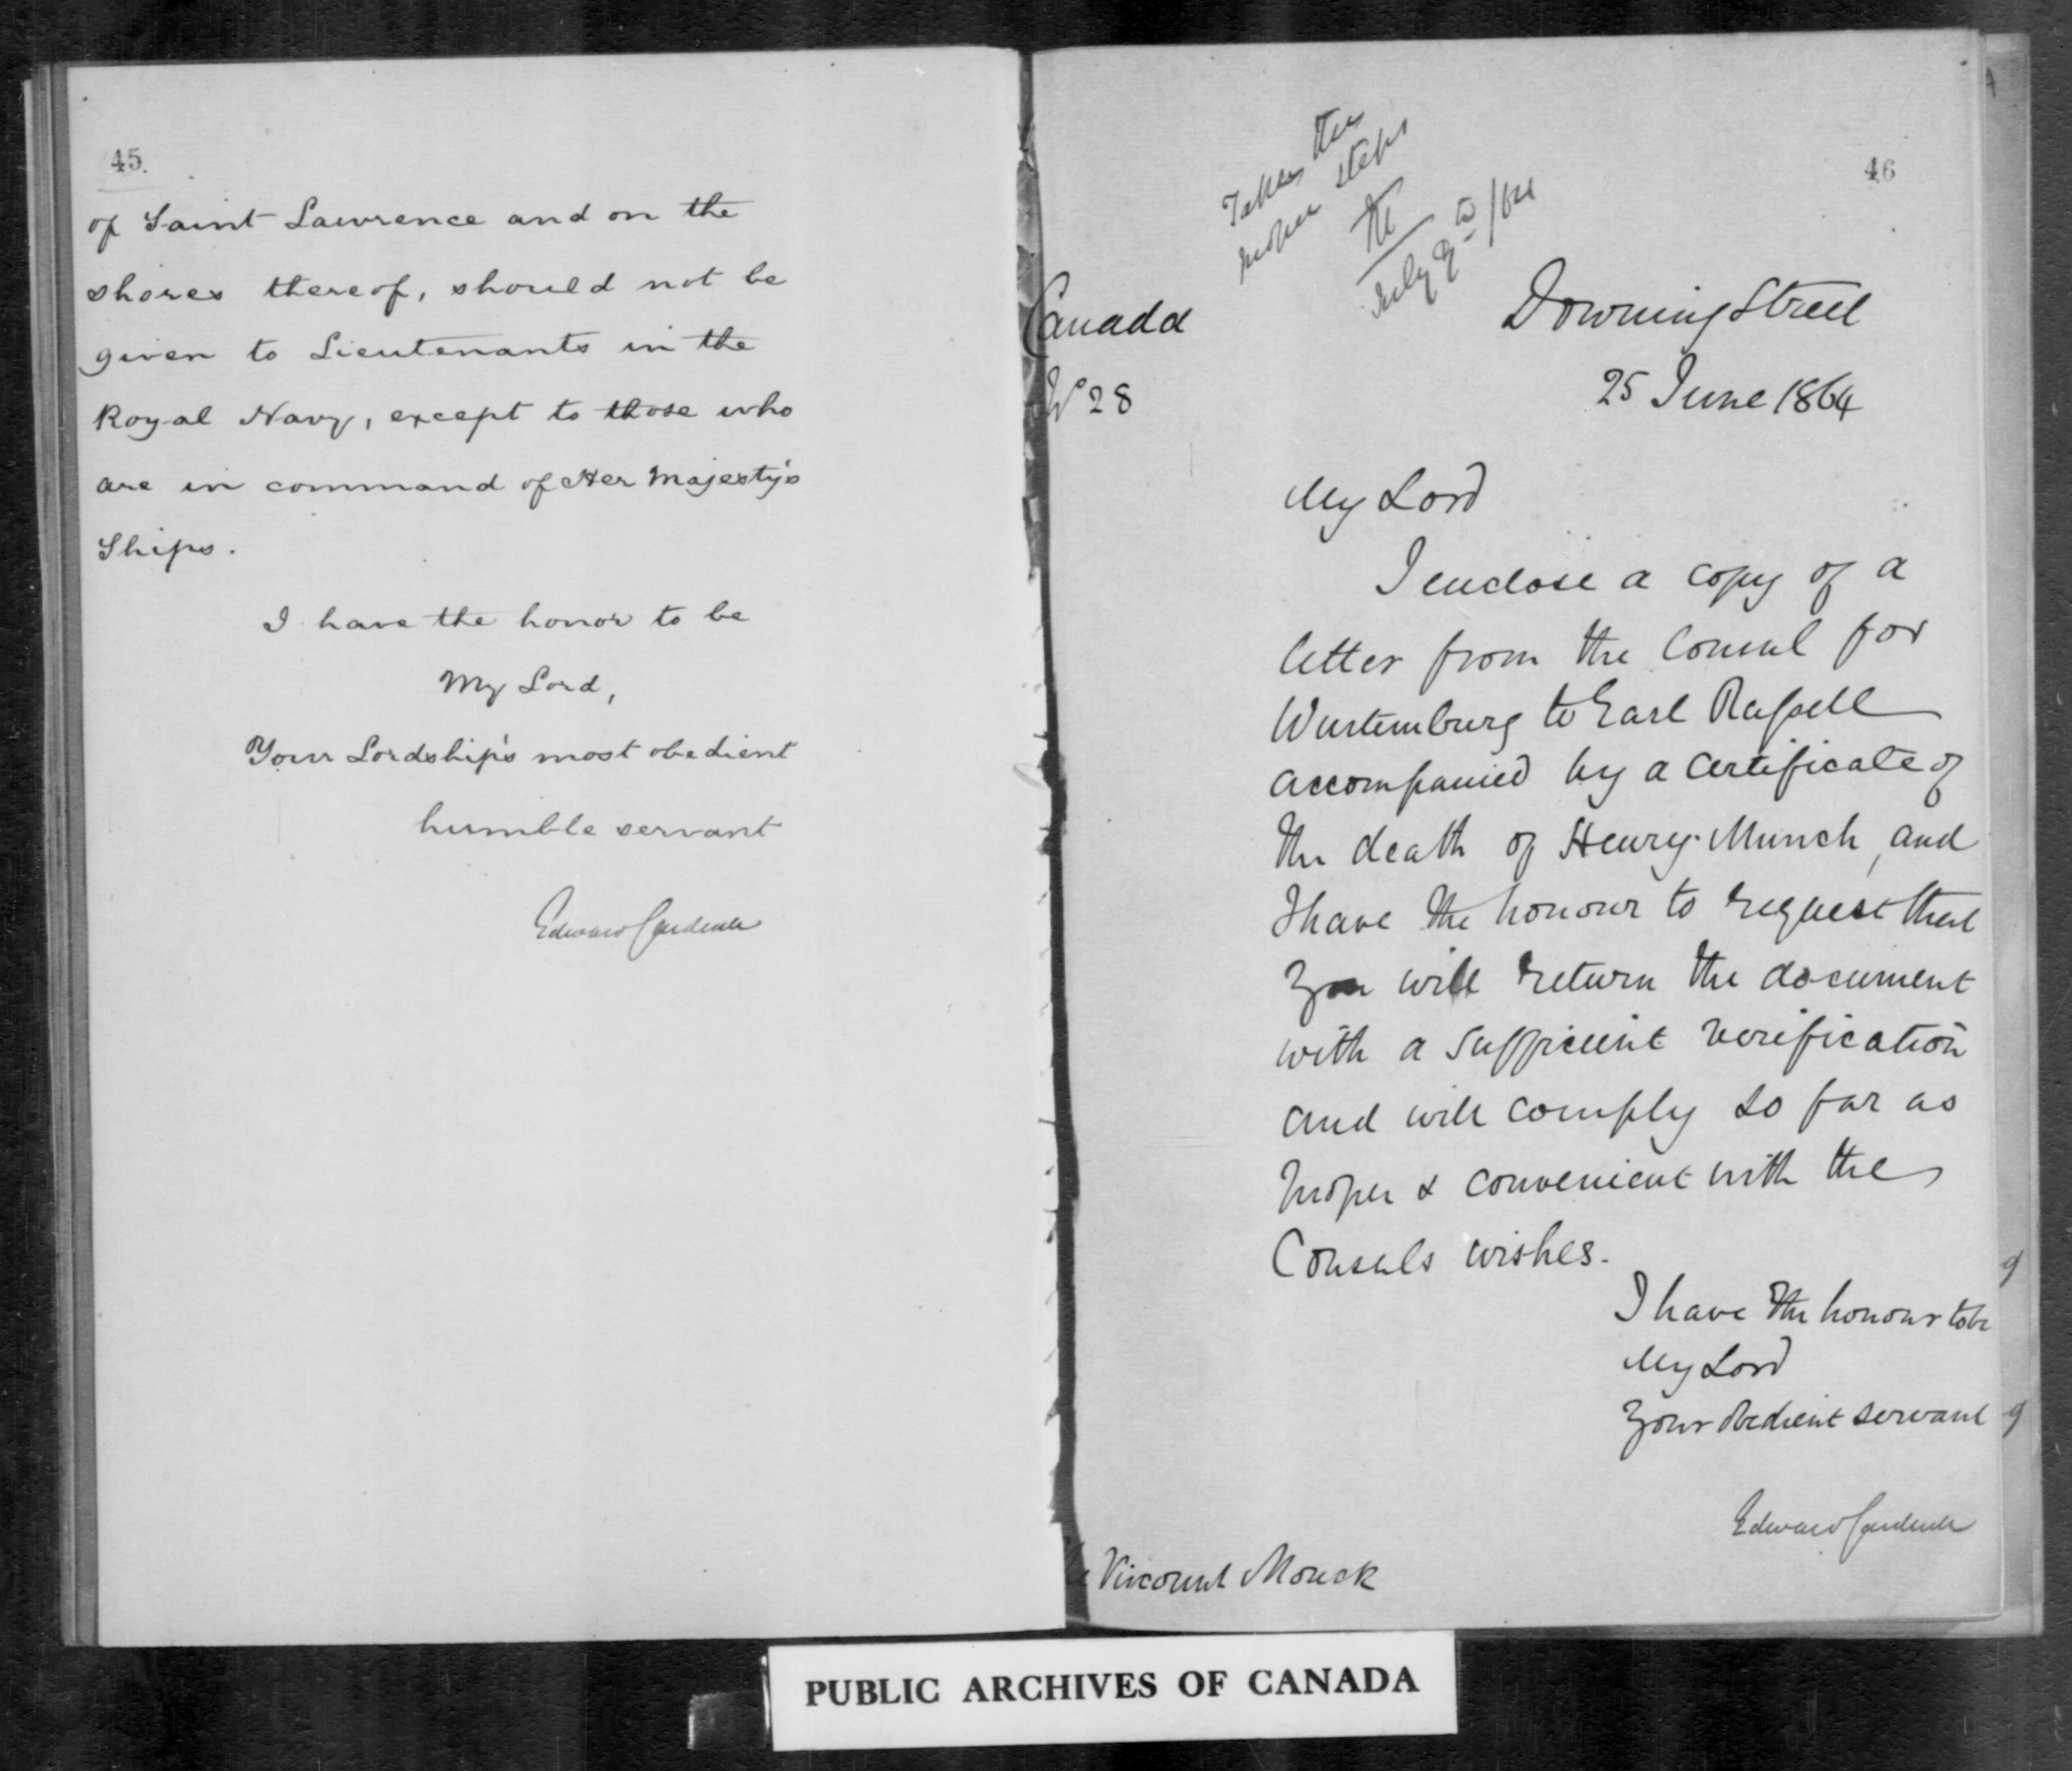 45.
of Saint Lawrence and on the
shores thereof, should not be
given to Lieutenants in the
Royal Navy, except to those who
are in command of Her Majesty's
Ships.
I have the honor to be
My Lord,
Your Lordship's most obedient
humble servant
Edward Cardwell
46
Take the
proper steps
M
July 9th/64
Canada
No 28
Downing Street
25 June 1864
My Lord
I enclose a copy of a
letter from the Consul for
Wurtemburg to Earl Russell
accompanied by a certificate of
the death of Henry Munch, and
I have the honour to request that
you will return the document
with a sufficient verification
and will comply so far as
proper & convenient with the
Consuls wishes.
I have the honour to be
My Lord
Your obedient servant
Edward Cardwell
Viscount Monck
PUBLIC ARCHIVES OF CANADA